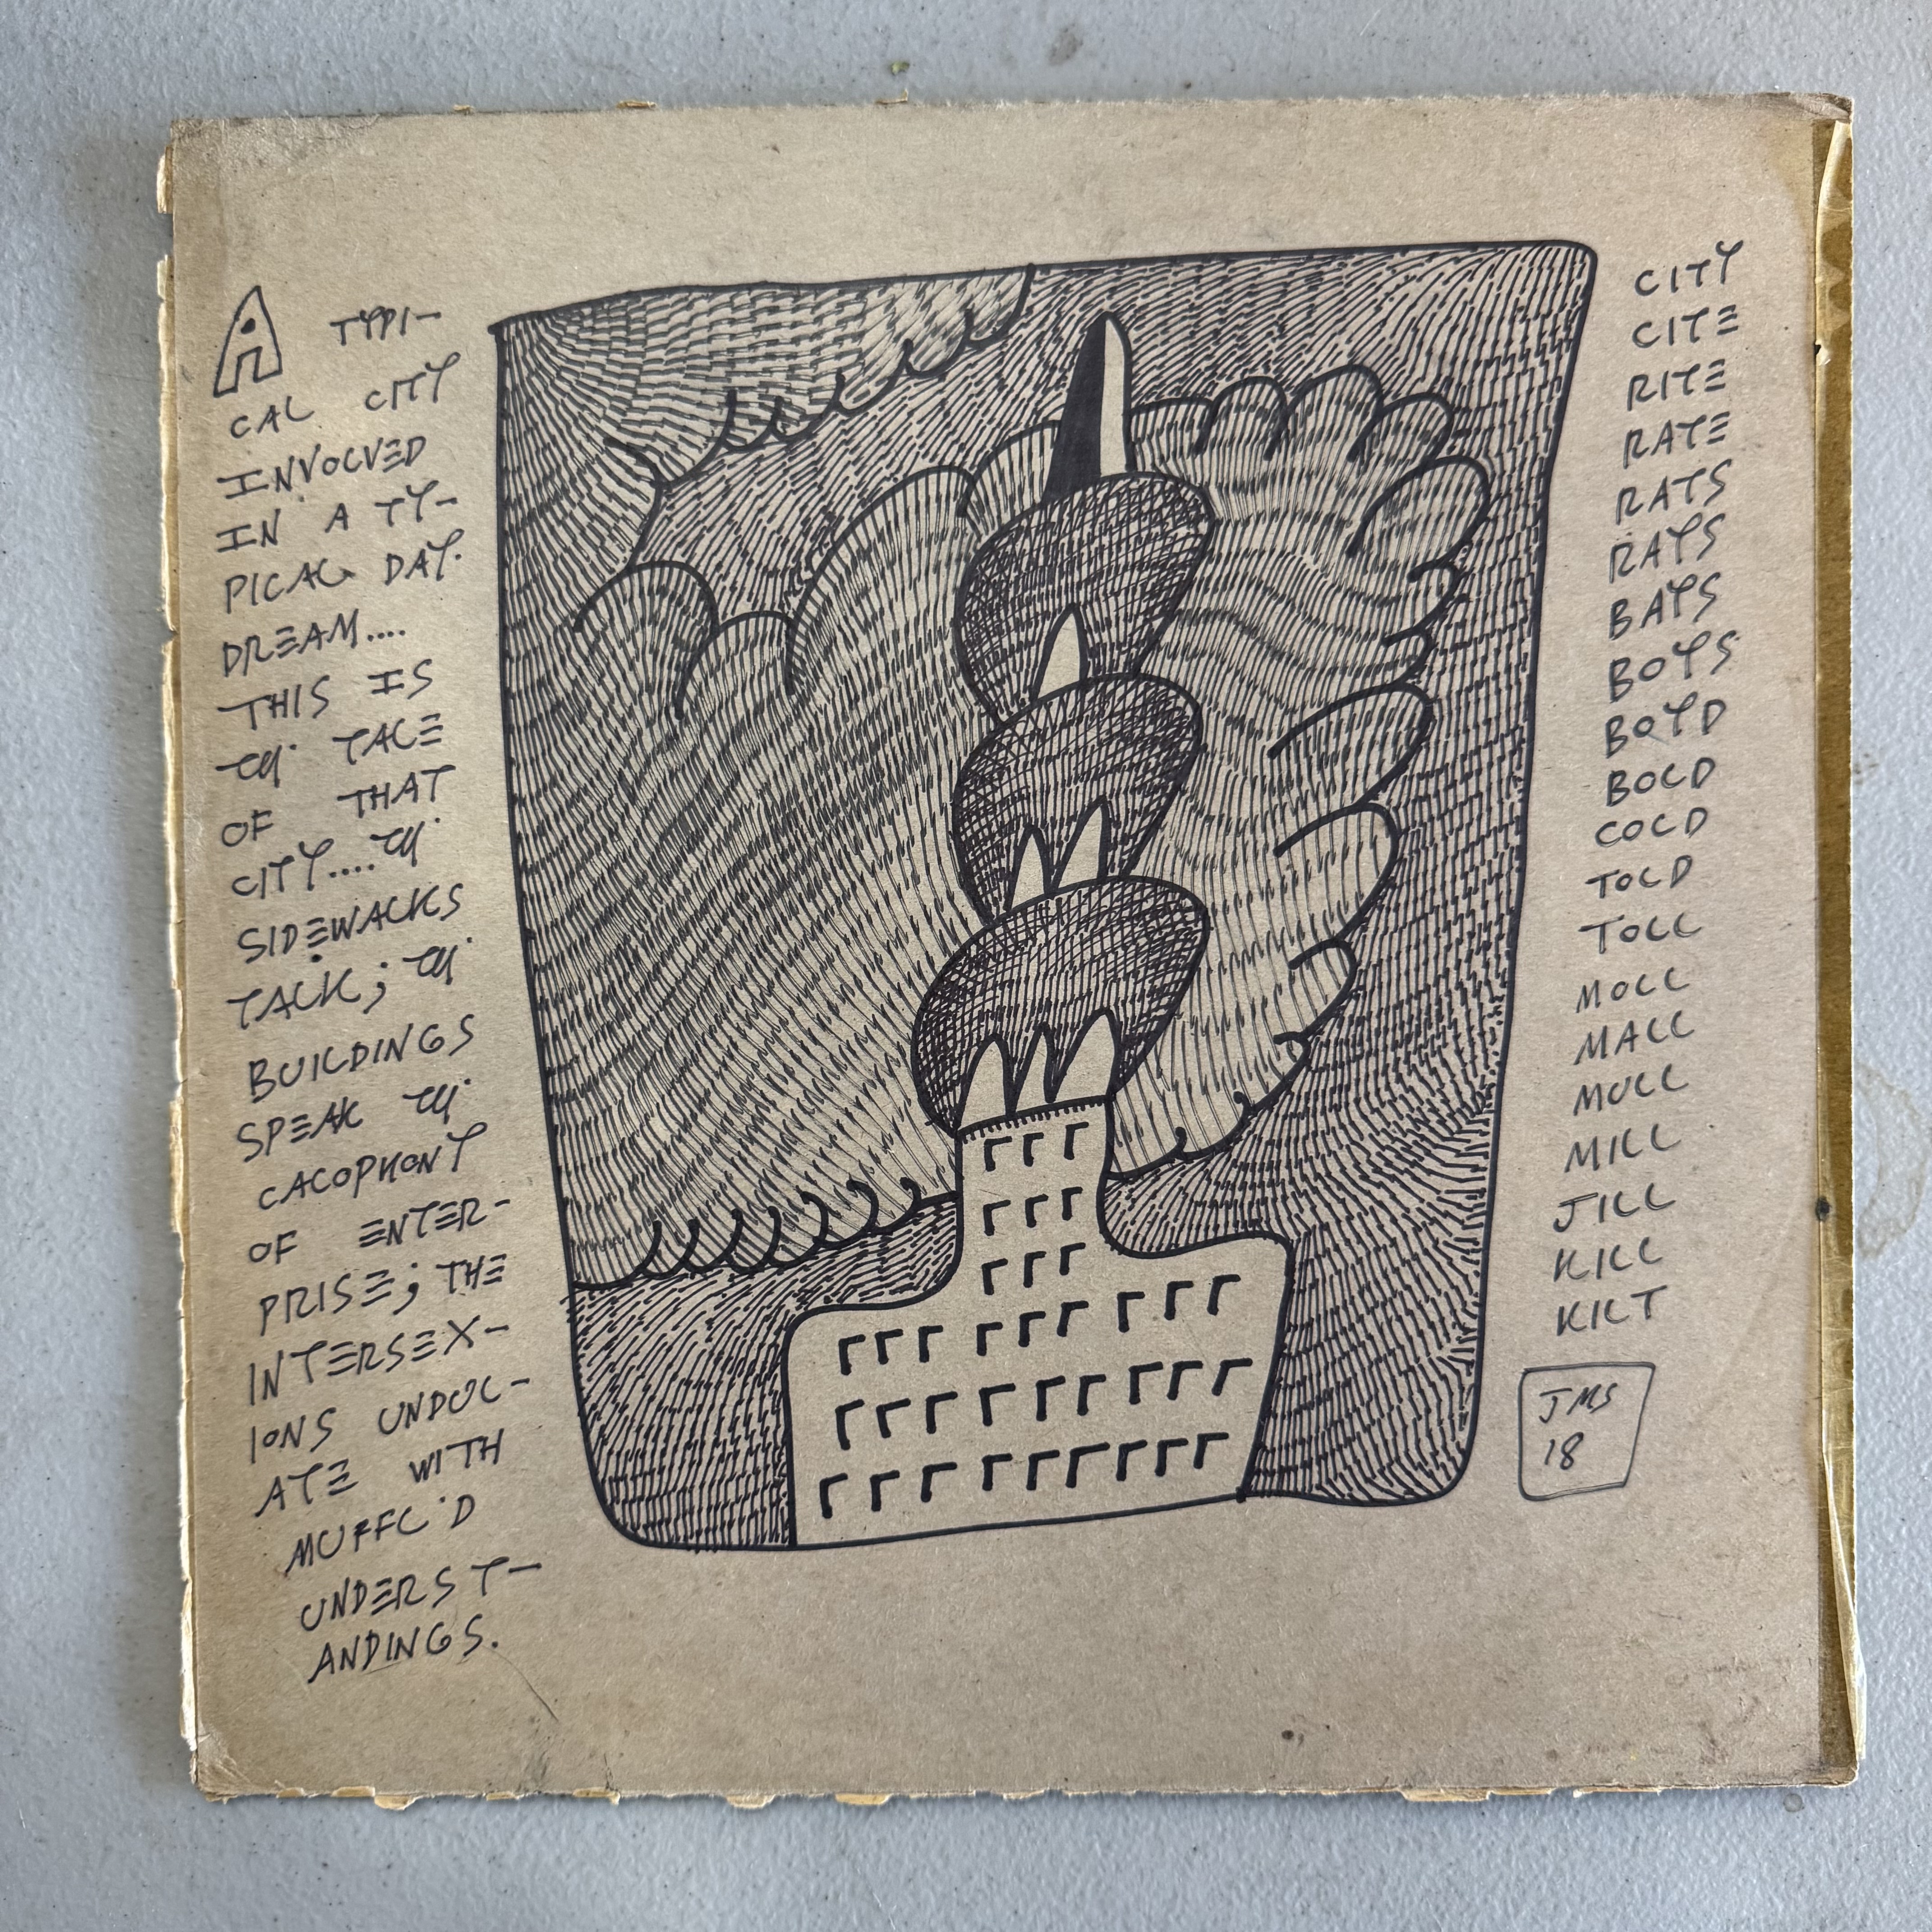 A TYPI-
CAL CITY
INVOLVED
IN A TY-
PICAL DAY-
DREAM....
THIS IS
TH' TALE
OF THAT
CITY....TH'
SIDEWALKS
TALK; TH'
BUILDINGS
SPEAK TH'
CACOPHONY
OF ENTER-
PRISE; THE
INTERSEX-
IONS UNDUL-
ATE WITH
MUFFL'D
UNDERST-
ANDINGS.
CITY
CITE
RITE
RATE
RATS
RAYS
BAYS
BOYS
BOYD
BOLD
COLD
TOLD
TOLL
MOLL
MALL
MULL
MILL
JILL
KILL
KILT
JMS
18